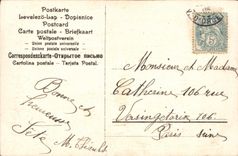 Postkarte
Levelező-lap - Dopisnice
Postcard
Carte postale - Briefkaart
Weltpostverein
- Union postale universelle -
- Unione postale universale -
Correspondenzkarte - Открытое письмо
Cartolina postale - Tarjeta Postal
Monsieur et Madame
Catherine 106 rue
Vercingétorix 106
Paris Seine
Bonne et
heureuse
fête